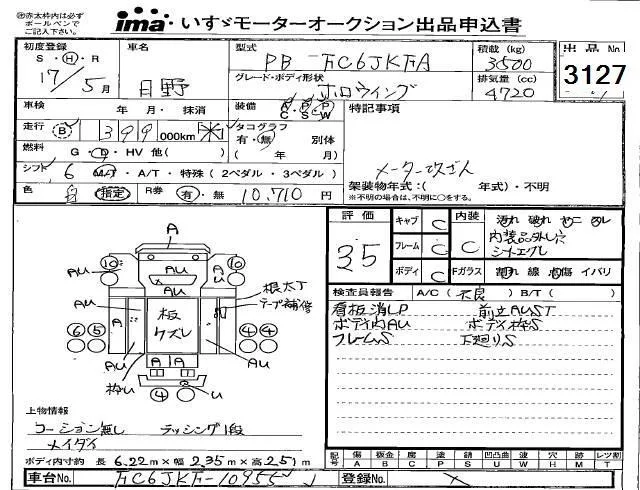 ㊟赤太枠内は必ず
ボールペンで
ご記入下さい。
ima いすゞモーターオークション出品申込書
初度登録
S・Ⓗ・R
17/5月
車名
日野
型式
PB-FC6JKFA
積載 (kg)
3500
出品No
3127
グレード・ボディ形状
ホロウイング
排気量 (cc)
4720
車検 年・月・抹消
装備 A・P・P
C S W
特記事項
メーター改ざん
走行 B 399 000km 米
タコグラフ
有・無 別体
( 年 月)
燃料 G・D・HV 他( )
シフト 6 M/T・A/T・特殊(2ペダル・3ペダル)
架装物年式:( 年式)・不明
※不明の場合は、不明に○をする。
色 白 指定 R券 有・無 10,710円
評価
3.5
キャブ C
フレーム C
ボディ C
内装 C
Fガラス
汚れ 破れ コゲ スレ
内装品外し穴
シートエグレ
割れ 線 点傷 イバリ
検査員報告 A/C(不良) B/T( )
看板消しP 前立AUST
ボディ内AU ボディ枠S
フレームS 下廻りS
A
AU
AU
AU
10
10
AU
根太T
テープ補修
A
板
ケズレ
6 5
4 4
AU
AU
枠U
A A
4
U
上物情報
コーション無し ラッシング1段
メイダイ
ボディ内寸約 長 6.22m×幅 2.35m×高 2.51m
記号 傷 A 板金 B 腐 C 塗 P 錆 S 凹凸曲 U 波 W 穴 H 跡 M レツ割 T
車台No. FC6JKF-10955
登録No.